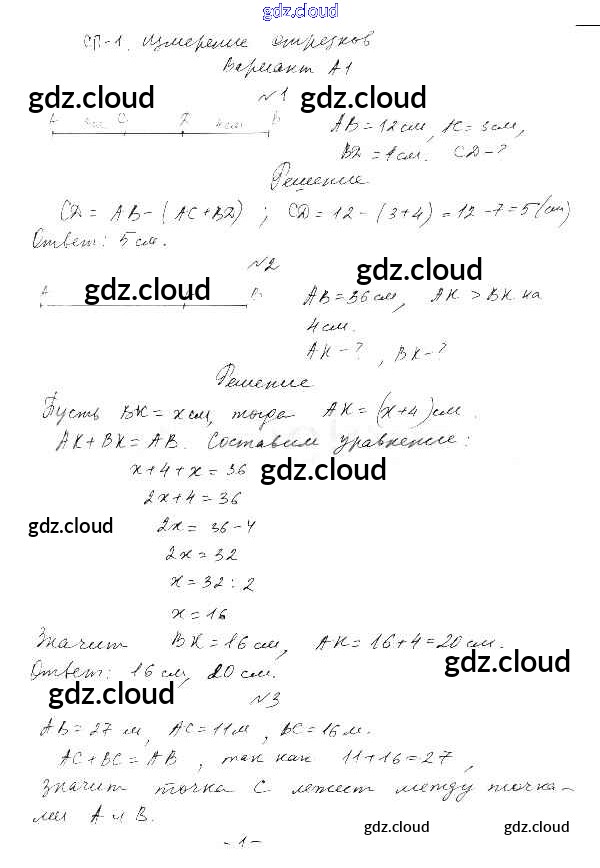 gdz.cloud
СП-1. Измерение отрезков
Вариант А1
gdz.cloud gdz.cloud
№1
A 3см C D 4см B
AB = 12 см, AC = 3 см,
BD = 4 см. CD - ?
Решение
CD = AB - (AC + BD) ; CD = 12 - (3+4) = 12 - 7 = 5 (см)
Ответ: 5 см.
№2
gdz.cloud gdz.cloud
A K B
AB = 36 см, AK > BK на
4 см.
AK - ? , BK - ?
Решение
Пусть BK = x см, тогда AK = (x+4) см.
AK + BK = AB. Составим уравнение:
x + 4 + x = 36
gdz.cloud
2x + 4 = 36
gdz.cloud
2x = 36 - 4
2x = 32
gdz.cloud
x = 32 : 2
x = 16
Значит BK = 16 см, AK = 16 + 4 = 20 см.
gdz.cloud
Ответ: 16 см, 20 см.
gdz.cloud
№3
AB = 27 м, AC = 11 м, BC = 16 м.
AC + BC = AB , так как 11 + 16 = 27 ,
значит точка C лежит между точка-
ми A и B.
gdz.cloud gdz.cloud
- 1 -